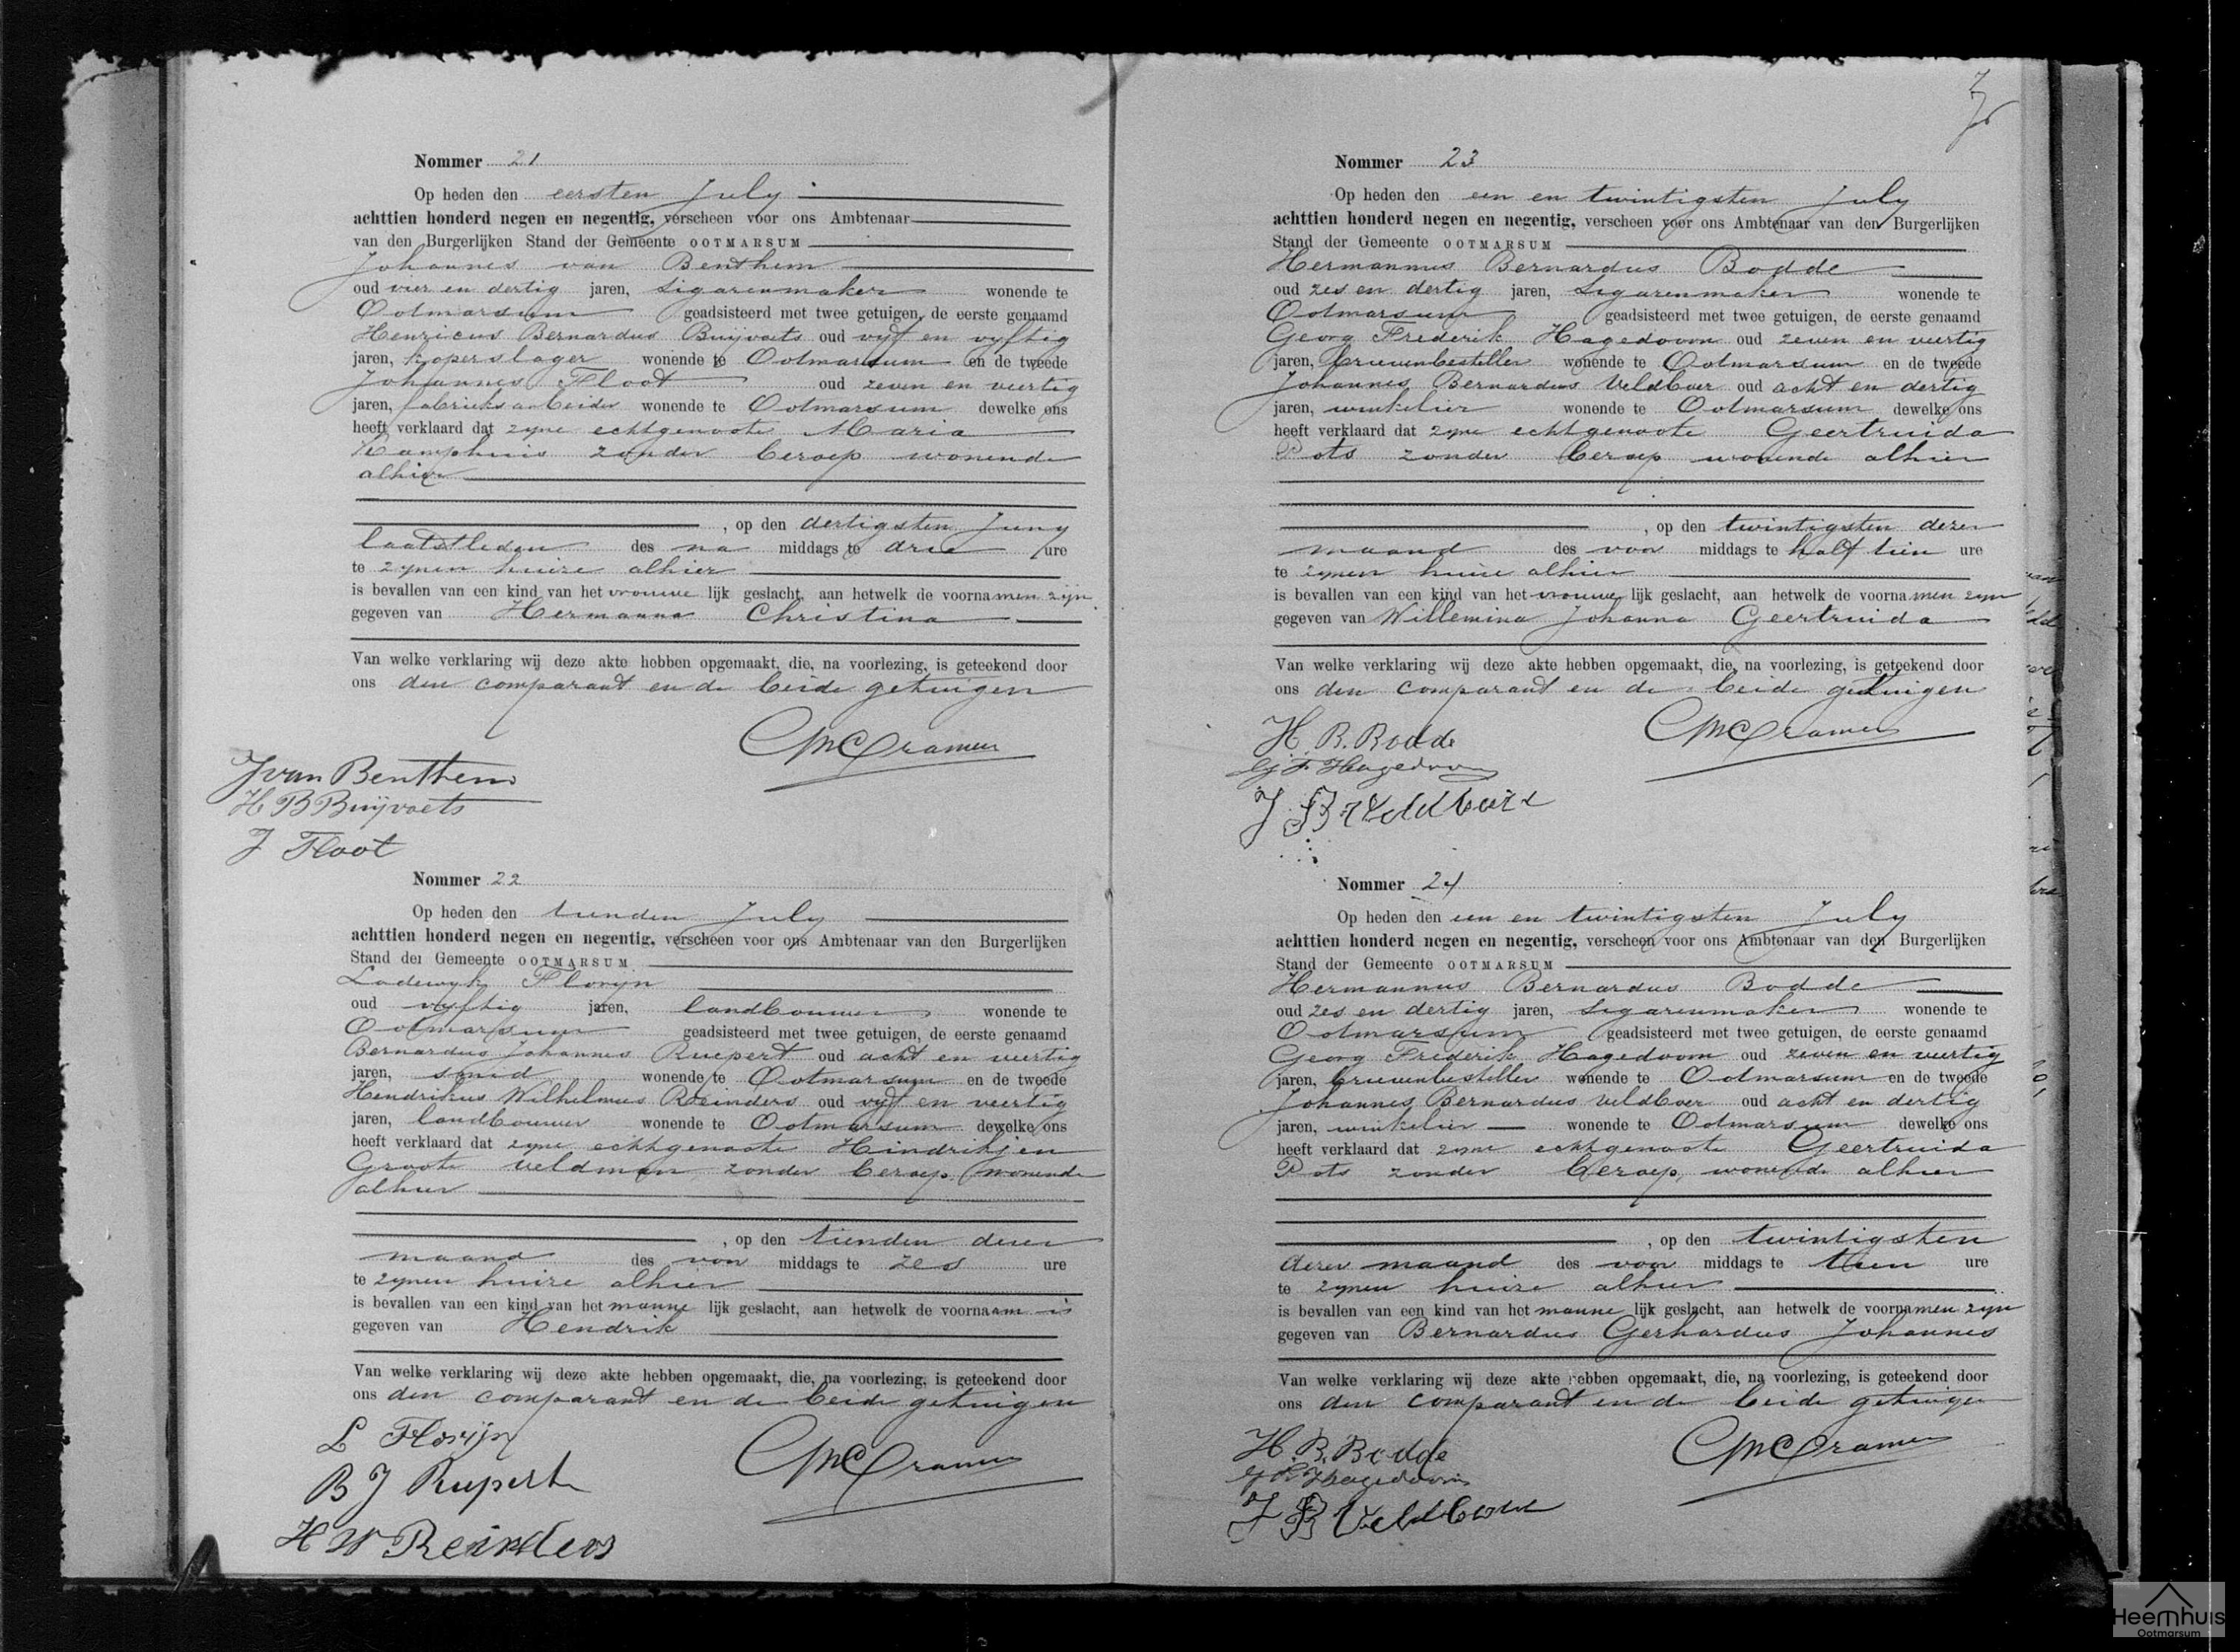 Nommer 21
Op heden den eersten July
achttien honderd negen en negentig, verscheen voor ons Ambtenaar
van den Burgerlijken Stand der Gemeente OOTMARSUM
Johannes van Benthem
oud vier en dertig jaren, sigarenmaker wonende te
Ootmarsum geadsisteerd met twee getuigen, de eerste genaamd
Henricus Bernardus Buijvoets oud vyf en vyftig
jaren, koperslager wonende te Ootmarsum en de tweede
Johannes Floot oud zeven en veertig
jaren, fabrieksarbeider wonende te Ootmarsum dewelke ons
heeft verklaard dat zyne echtgenoote Maria
Kamphuis zonder beroep wonende
alhier
, op den dertigsten Juny
laatstleden des na middags te drie ure
te zynen huize alhier
is bevallen van een kind van het vrouwe lijk geslacht, aan hetwelk de voornamen zijn
gegeven van Hermanna Christina
Van welke verklaring wij deze akte hebben opgemaakt, die, na voorlezing, is geteekend door
ons den comparant en de beide getuigen
CMCramer
J van Benthem
H B Buijvoets
J Floot
Nommer 22
Op heden den tienden July
achttien honderd negen en negentig, verscheen voor ons Ambtenaar van den Burgerlijken
Stand der Gemeente OOTMARSUM
Lodewyk Floryn
oud vyftig jaren, landbouwer wonende te
Ootmarsum geadsisteerd met twee getuigen, de eerste genaamd
Bernardus Johannes Ruepert oud acht en veertig
jaren, smid wonende te Ootmarsum en de tweede
Hendrikus Wilhelmus Reinders oud vyf en veertig
jaren, landbouwer wonende te Ootmarsum dewelke ons
heeft verklaard dat zyne echtgenoote Hindrikjen
Groote Veldman zonder beroep wonende
alhier
, op den tienden dezer
maand des voor middags te zes ure
te zynen huize alhier
is bevallen van een kind van het manne lijk geslacht, aan hetwelk de voornaam is
gegeven van Hendrik
Van welke verklaring wij deze akte hebben opgemaakt, die, na voorlezing, is geteekend door
ons den comparant en de beide getuigen
L Florijn
CMCramer
B J Rupert
H W Reinders
7
Nommer 23
Op heden den een en twintigsten July
achttien honderd negen en negentig, verscheen voor ons Ambtenaar van den Burgerlijken
Stand der Gemeente OOTMARSUM
Hermannus Bernardus Bodde
oud zes en dertig jaren, sigarenmaker wonende te
Ootmarsum geadsisteerd met twee getuigen, de eerste genaamd
Georg Frederik Hagedoorn oud zeven en veertig
jaren, brievenbesteller wonende te Ootmarsum en de tweede
Johannes Bernardus Veldboer oud acht en dertig
jaren, winkelier wonende te Ootmarsum dewelke ons
heeft verklaard dat zyne echtgenoote Geertruida
Pots zonder beroep wonende alhier
, op den twintigsten dezer
maand des voor middags te half tien ure
te zynen huize alhier
is bevallen van een kind van het vrouwe lijk geslacht, aan hetwelk de voornamen zyn
gegeven van Willemina Johanna Geertruida
Van welke verklaring wij deze akte hebben opgemaakt, die, na voorlezing, is geteekend door
ons den comparant en de beide getuigen
H. B. Bodde
CMCramer
G F Hagedoorn
J B Veldboer
Nommer 24
Op heden den een en twintigsten July
achttien honderd negen en negentig, verscheen voor ons Ambtenaar van den Burgerlijken
Stand der Gemeente OOTMARSUM
Hermannus Bernardus Bodde
oud zes en dertig jaren, sigarenmaker wonende te
Ootmarsum geadsisteerd met twee getuigen, de eerste genaamd
Georg Frederik Hagedoorn oud zeven en veertig
jaren, brievenbesteller wonende te Ootmarsum en de tweede
Johannes Bernardus Veldboer oud acht en dertig
jaren, winkelier wonende te Ootmarsum dewelke ons
heeft verklaard dat zyne echtgenoote Geertruida
Pots zonder beroep, wonende alhier
, op den twintigsten
dezer maand des voor middags te tien ure
te zynen huize alhier
is bevallen van een kind van het manne lijk geslacht, aan hetwelk de voornamen zyn
gegeven van Bernardus Gerhardus Johannes
Van welke verklaring wij deze akte hebben opgemaakt, die, na voorlezing, is geteekend door
ons den comparant en de beide getuigen
H. B. Bodde
CMCramer
G F Hagedoorn
J B Veldboer
Heemhuis
Ootmarsum